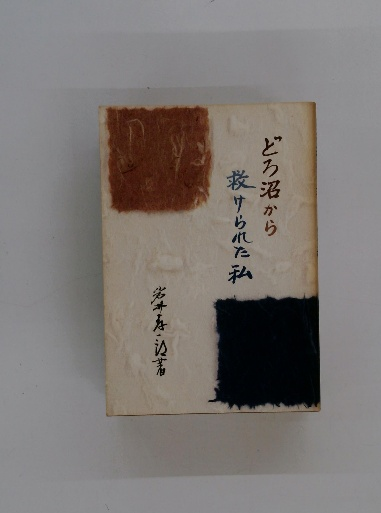 どろ沼から
救けられた私
岩井孝一郎著